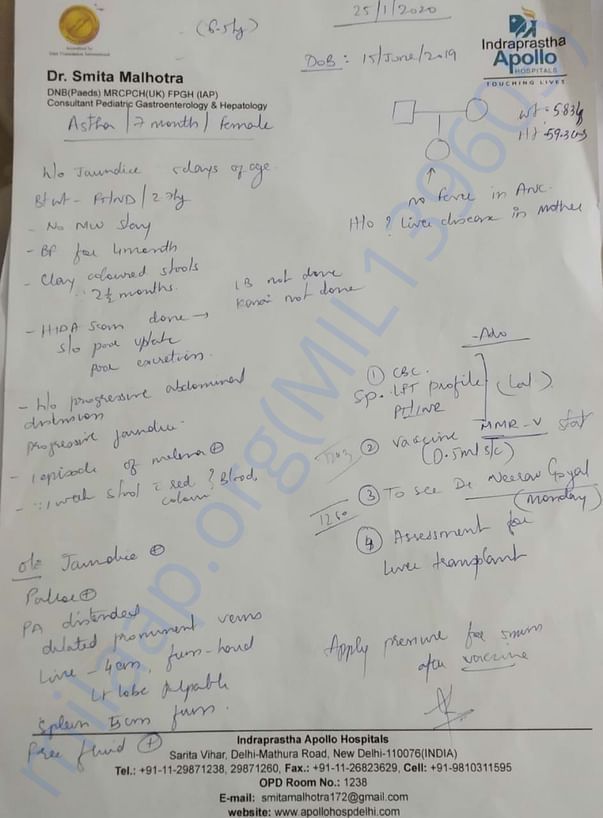 25/1/2020
(6.5kg)
DOB: 15/June/2019
Indraprastha
Apollo
HOSPITALS
TOUCHING LIVES
Dr. Smita Malhotra
DNB(Paeds) MRCPCH(UK) FPGH (IAP)
Consultant Pediatric Gastroenterology & Hepatology
Astha / 7 month / Female
wt - 5.83kg
Ht - 59.3cms
no fever in ANC
H/o ? Liver disease in mother
h/o Jaundice 5days of age
Bt wt - FTNVD / 2.7kg
- No NICU stay
- BF for 4month
- Clay coloured stools
2½ months.
LB not done
Kasai not done
- HIDA Scan done →
s/o poor uptake
poor excretion.
- h/o progressive abdominal
distension
progressive jaundice.
- 1 episode of melena +
1 week stool c red ? Blood
colour
- Adv
① CBC
Sp. LFT profile
PT/INR
(Lal)
② vaccine MMR-V stat
(0.5ml s/c)
③ To see Dr Neerav Goyal
(Monday)
1260
④ Assessment for
liver transplant
o/e Jaundice +
Pallor +
PA distended
dilated prominent veins
Liver - 4cm, firm-hard
Lt lobe palpable
Spleen 5cm firm.
Free fluid +
Apply pressure for 5mins
after vaccine
Indraprastha Apollo Hospitals
Sarita Vihar, Delhi-Mathura Road, New Delhi-110076(INDIA)
Tel.: +91-11-29871238, 29871260, Fax.: +91-11-26823629, Cell: +91-9810311595
OPD Room No.: 1238
E-mail: smitamalhotra172@gmail.com
website: www.apollohospdelhi.com
milaap.org(MIL139607)